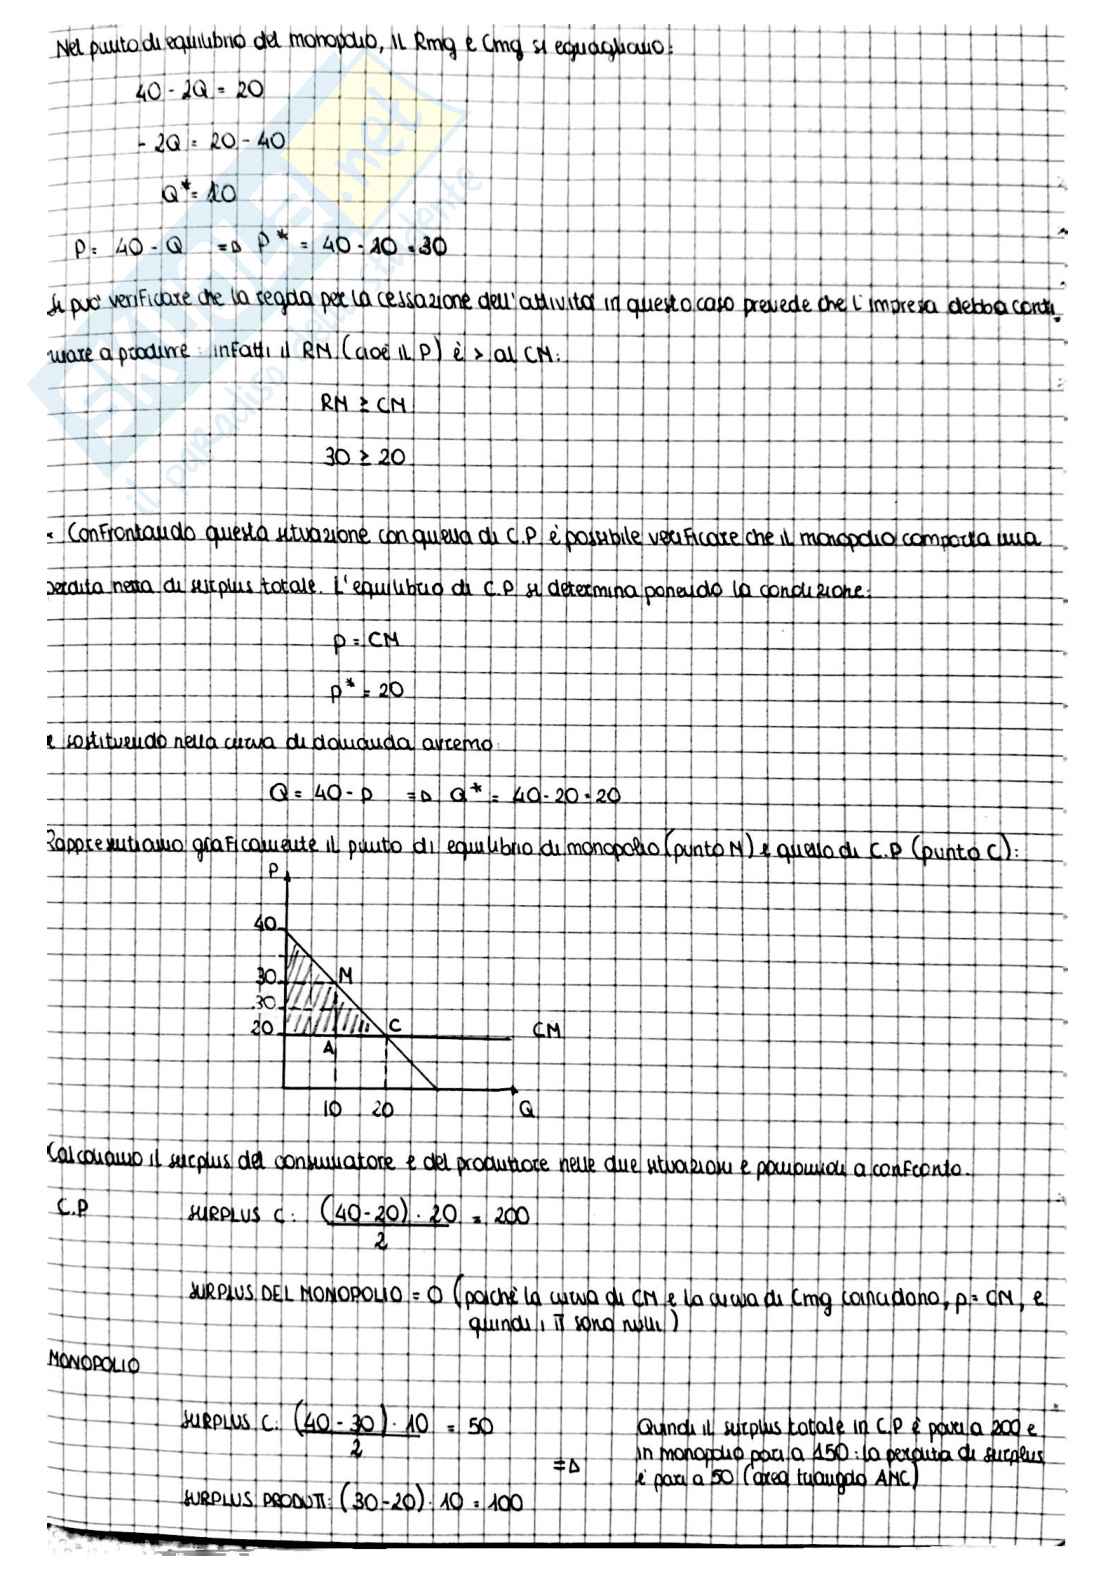 Nel punto di equilibrio del monopolio, il Rmg e Cmg si eguagliano:
40 - 2Q = 20
- 2Q = 20 - 40
Q* = 10
P = 40 - Q => P* = 40 - 10 = 30
Si può verificare che la regola per la cessazione dell'attività in questo caso prevede che l'impresa debba conti
nuare a produrre: infatti il RM (cioè il P) è > al CM:
RM ≥ CM
30 ≥ 20
• Confrontando questa situazione con quella di C.P è possibile verificare che il monopolio comporta una
perdita netta di surplus totale. L'equilibrio di C.P si determina ponendo la condizione:
P = CM
P* = 20
e sostituendo nella curva di domanda avremo:
Q = 40 - P => Q* = 40 - 20 = 20
Rappresentiamo graficamente il punto di equilibrio di monopolio (punto M) e quello di C.P (punto C):
P
40
30 M
30
20 C CM
A
10 20 Q
Calcoliamo il surplus del consumatore e del produttore nelle due situazioni e poniamoli a confronto.
C.P SURPLUS C: (40-20) · 20 = 200
2
SURPLUS DEL MONOPOLIO = 0 (poichè la curva di CM e la curva di Cmg coincidono, p = CM, e
quindi i π sono nulli)
MONOPOLIO
SURPLUS C: (40 - 30) · 10 = 50
2
SURPLUS PRODUTT: (30-20) · 10 = 100
=> Quindi il surplus totale in C.P è pari a 200 e
in monopolio pari a 150: la perdita di surplus
è pari a 50 (area triangolo AMC)
SKUOLA.net
il paradiso dello studente